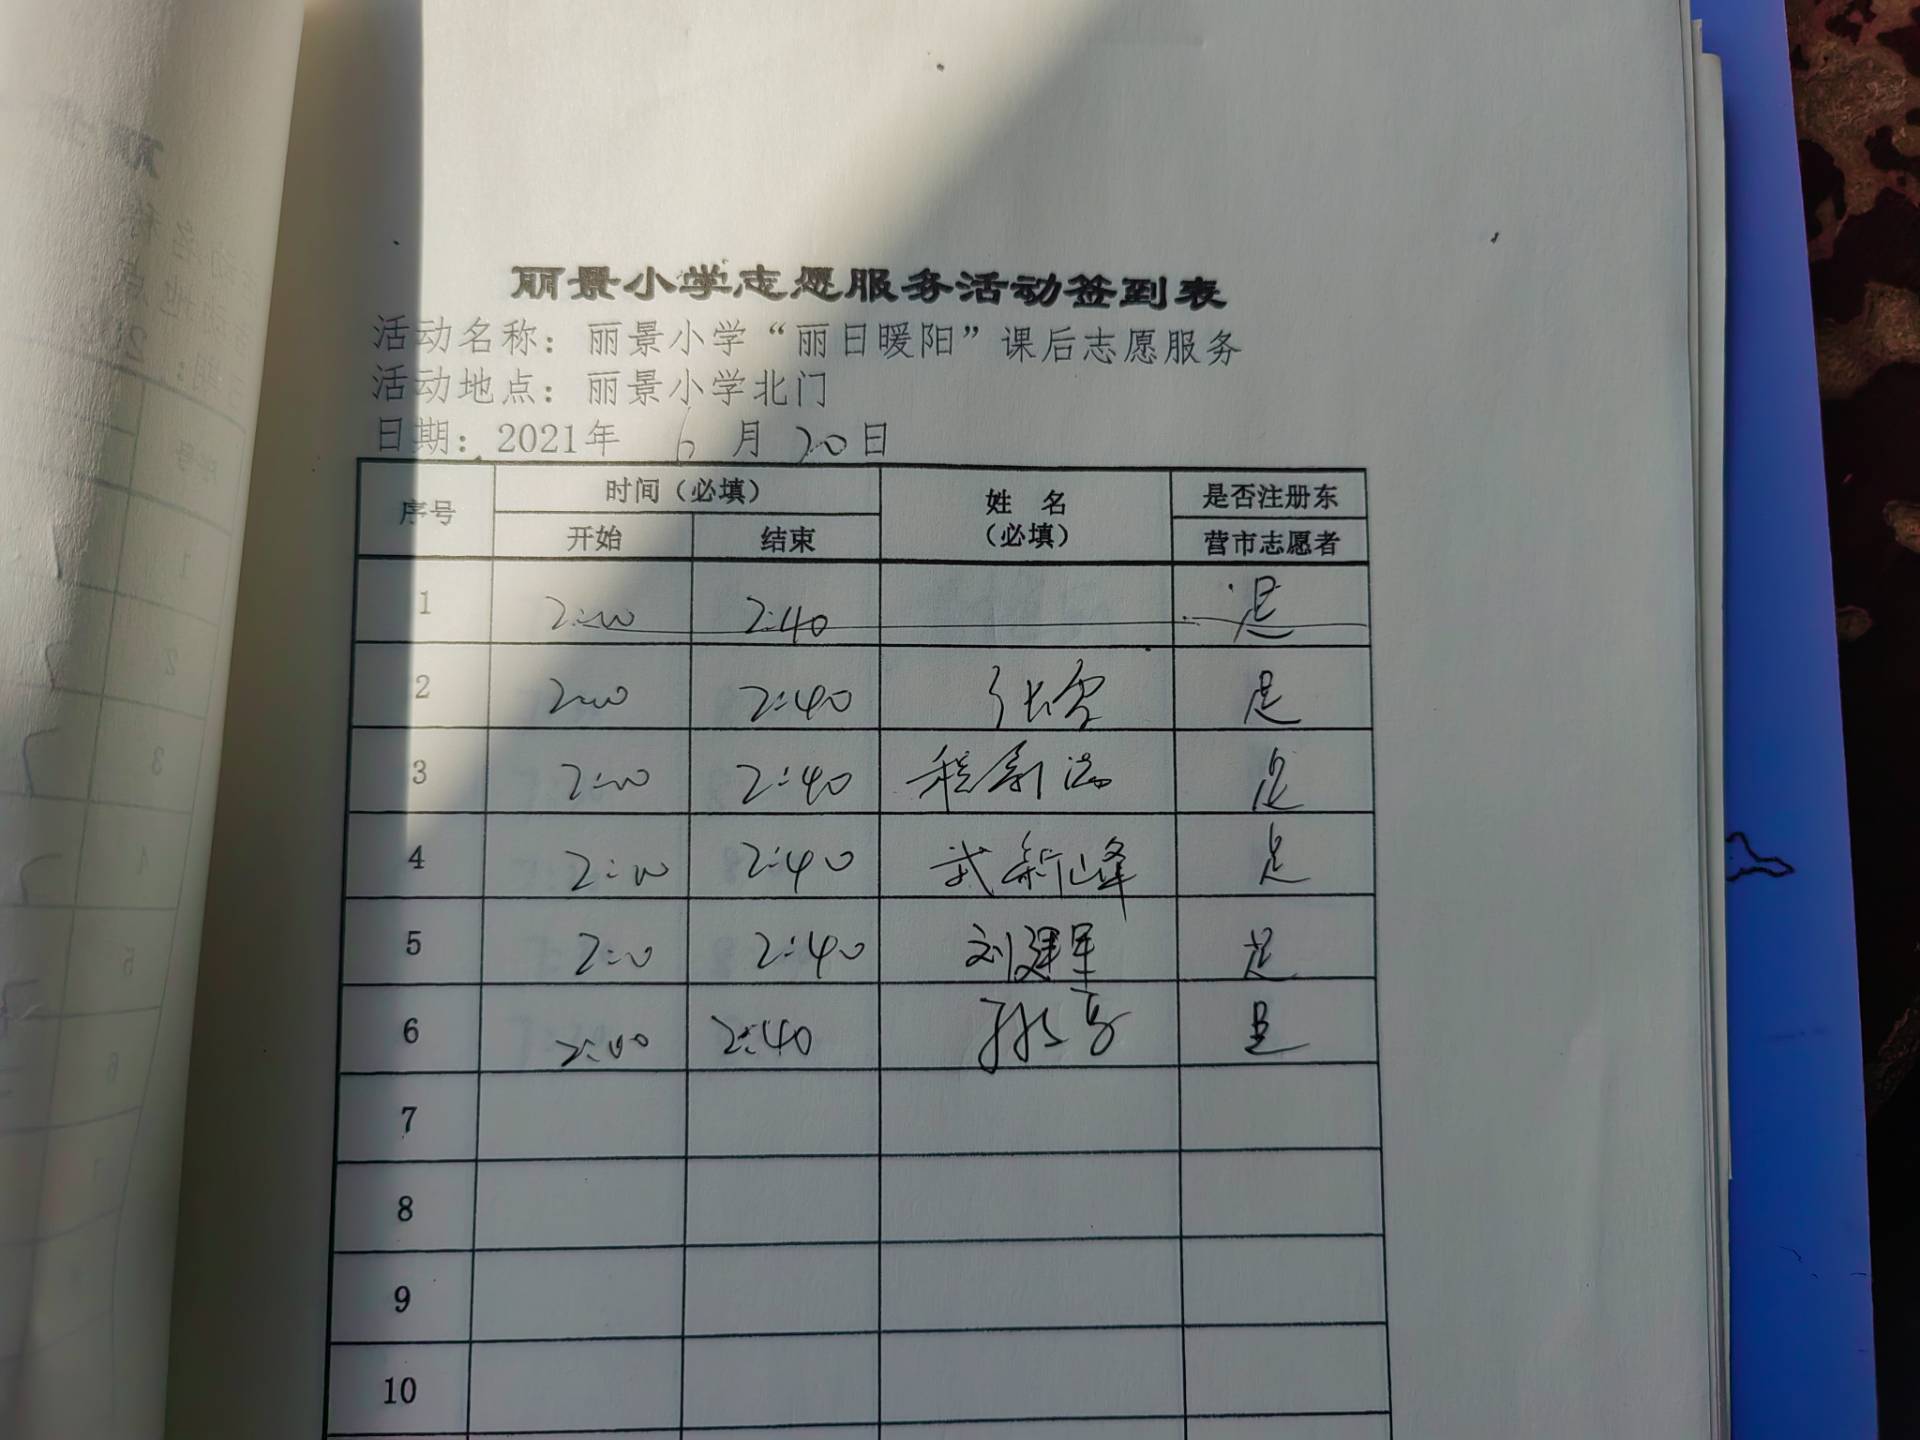 丽景小学志愿服务活动签到表
活动名称：丽景小学“丽日暖阳”课后志愿服务
活动地点：丽景小学北门
日期：2021年 6 月 20日
序号 时间（必填） 姓 名（必填） 是否注册东营市志愿者
开始 结束
1 2:00 2:40 是
2 2:00 2:40 张雪 是
3 2:00 2:40 程 是
4 2:00 2:40 武新峰 是
5 2:00 2:40 刘建军 是
6 2:00 2:40 是
7
8
9
10